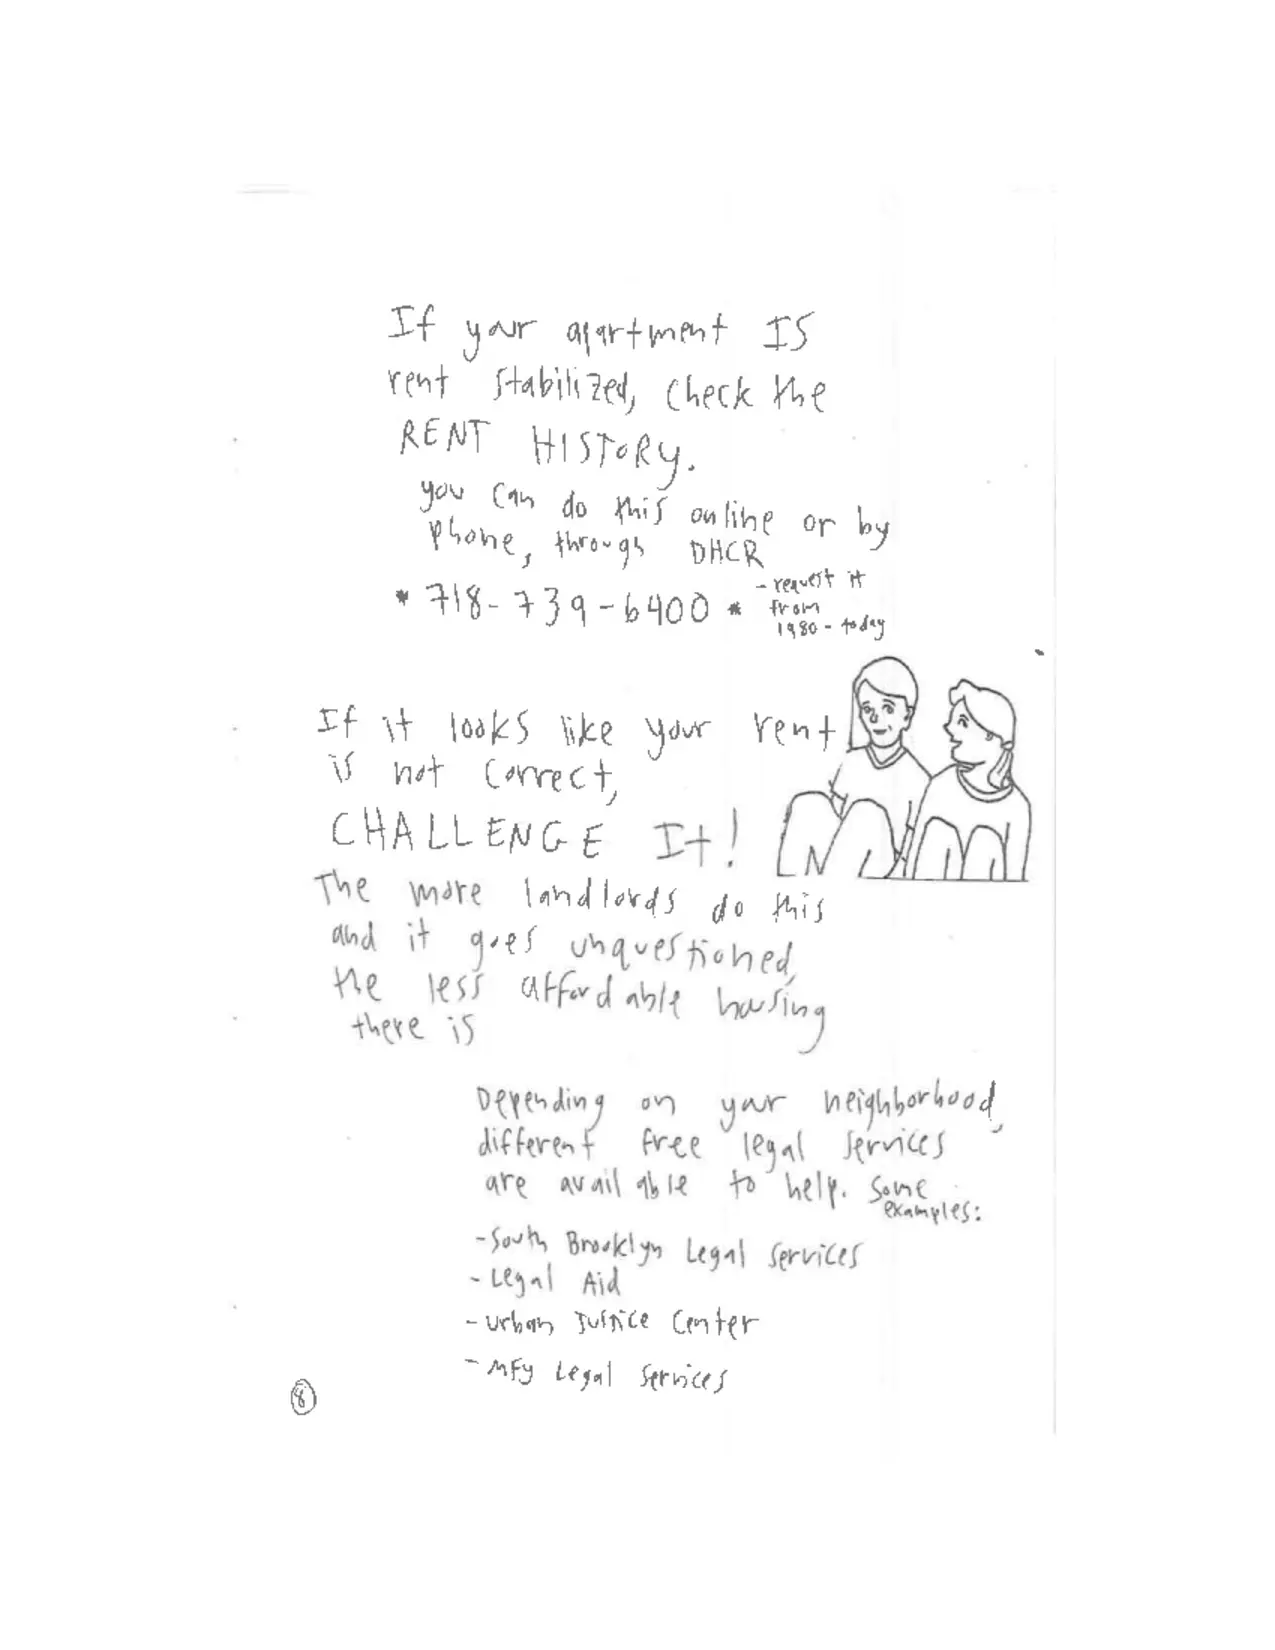 If your apartment IS
rent stabilized, check the
RENT HISTORY.
you can do this online or by
phone, through DHCR
* 718-739-6400 *
- request it
from
1980 - today
If it looks like your rent
is not correct,
CHALLENGE It!
The more landlords do this
and it goes unquestioned,
the less affordable housing
there is
Depending on your neighborhood,
different free legal services
are available to help. Some
examples:
- South Brooklyn Legal Services
- Legal Aid
- Urban Justice Center
- MFY Legal Services
8